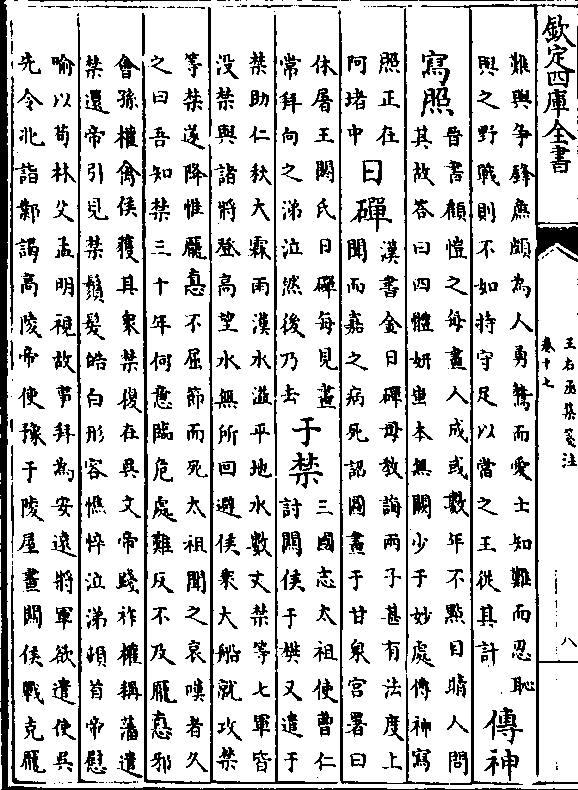 欽定四庫全書
王右丞集箋注
卷十七
八
難與爭鋒廉頗為人勇鷙而愛士知難而忍恥
與之野戰則不如持守足以當之王從其計
傳神
寫照
晉書顧愷之每畫人成或數年不點目睛人問
其故答曰四體妍蚩本無闕少于妙處傳神寫
照正在
阿堵中
日磾
漢書金日磾母教誨兩子甚有法度上
聞而嘉之病死詔圖畫于甘泉宮署曰
休屠王閼氏日磾每見畫
常拜向之涕泣然後乃去
于禁
三國志太祖使曹仁
討關侯于樊又遣于
禁助仁秋大霖雨漢水溢平地水數丈禁等七軍皆
没禁與諸將登高望水無所回避侯乗大船就攻禁
等禁遂降惟龎悳不屈節而死太祖聞之哀嘆者久
之曰吾知禁三十年何意臨危處難反不及龎悳邪
會孫權禽侯獲其衆禁復在吳文帝踐祚權稱藩遣
禁還帝引見禁鬚髮皓白形容憔悴泣涕頓首帝慰
喻以荀林父孟明視故事拜為安遠將軍欲遣使吳
先令北詣鄴謁高陵帝使豫于陵屋畫關侯戰克龎